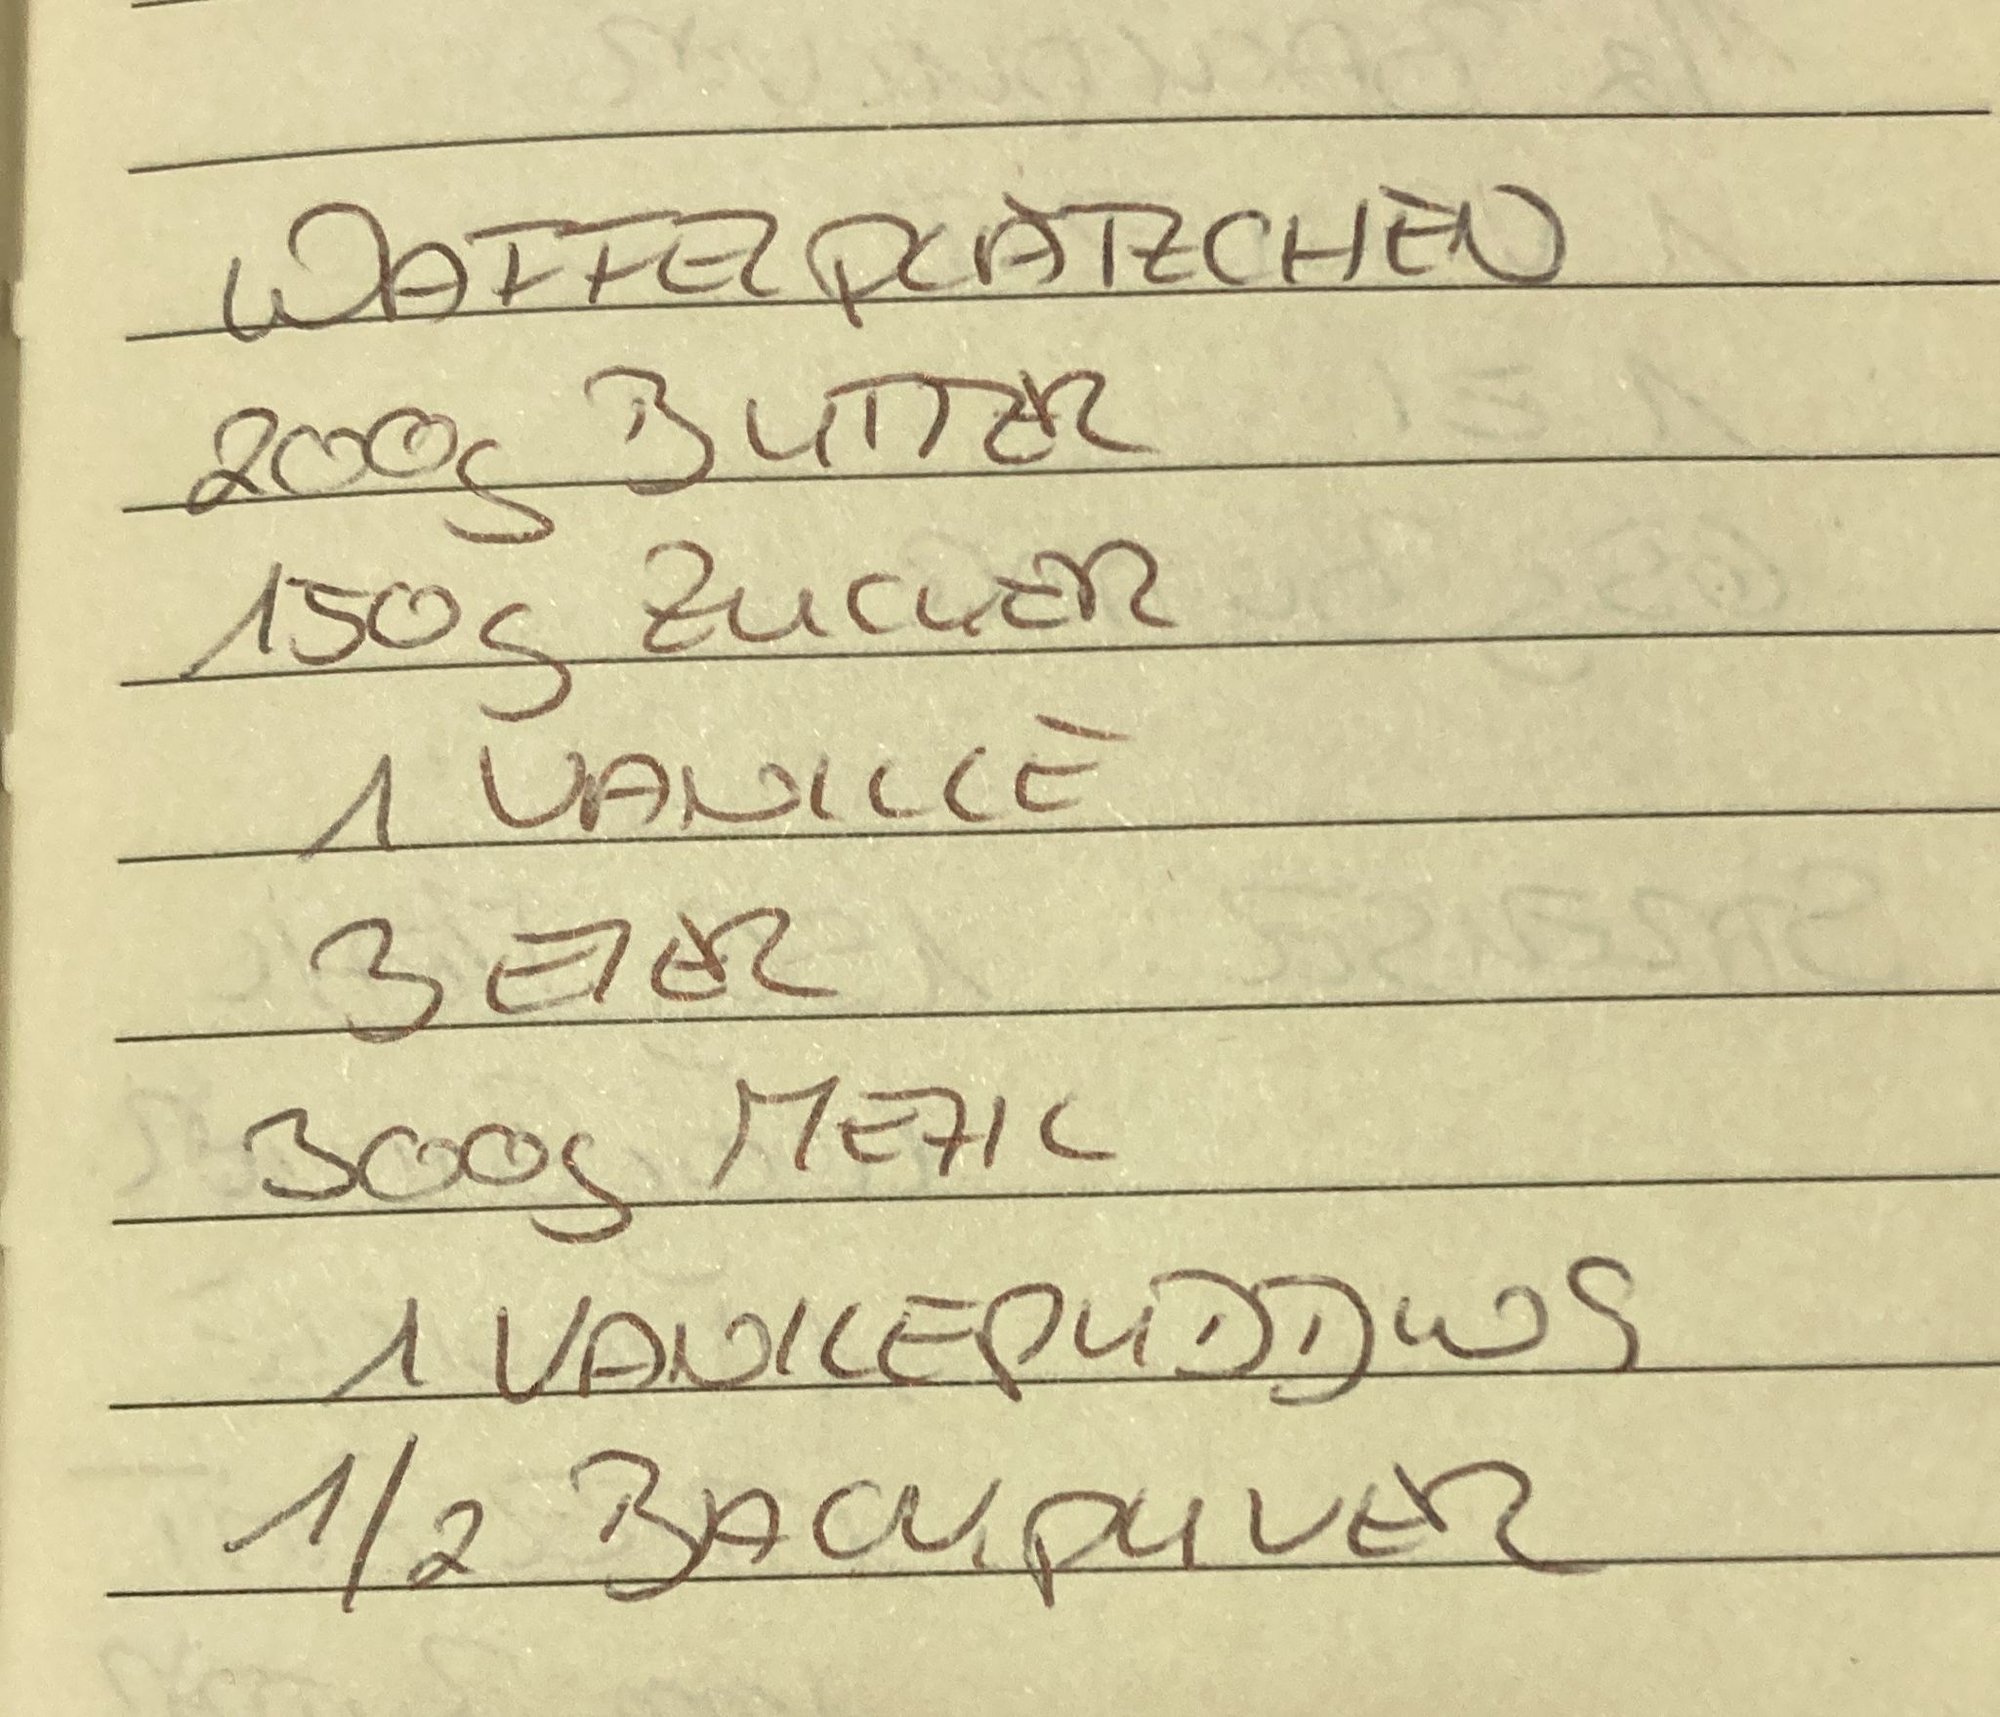 WAFFELPLÄTZCHEN
200g BUTTER
150g ZUCKER
1 VANILLE
3 EIER
300g MEHL
1 VANILLEPUDDING
1/2 BACKPULVER